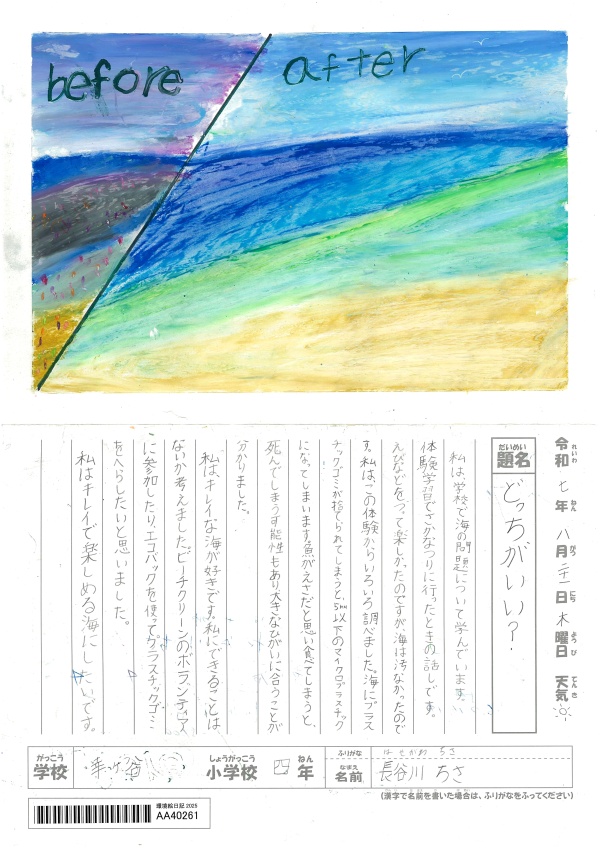 before
after
令和 七年 八月 二十一日 木曜日 天気
れいわ ねん がつ にち ようび てんき
だいめい
題名
どっちがいい？
私は学校で海の問題について学んでいます。
体験学習でさかなつりに行ったときの話しです。
えびなどをつって楽しかったのですが海は汚なかったので
す。私はこの体験からいろいろ調べました。海にプラス
チックゴミが捨てられてしまうと、5㎜以下のマイクロプラスチック
になってしまいます。魚がえさだと思い食べてしまうと、
死んでしまう可能性もあり大きなひがいに合うことが
分かりました。
私はキレイな海が好きです。私にできることは
ないか考えました。ビーチクリーンのボランティア
に参加したり、エコバックを使ってプラスチックゴミ
をへらしたいと思いました。
私はキレイで楽しめる海にしたいです。
がっこう
学校
しょうがっこう
小学校
四年
ねん
ふりがな
はせがわ ちさ
なまえ
名前
長谷川 ちさ
(漢字で名前を書いた場合は、ふりがなをふってください)
環境絵日記 2025
AA40261